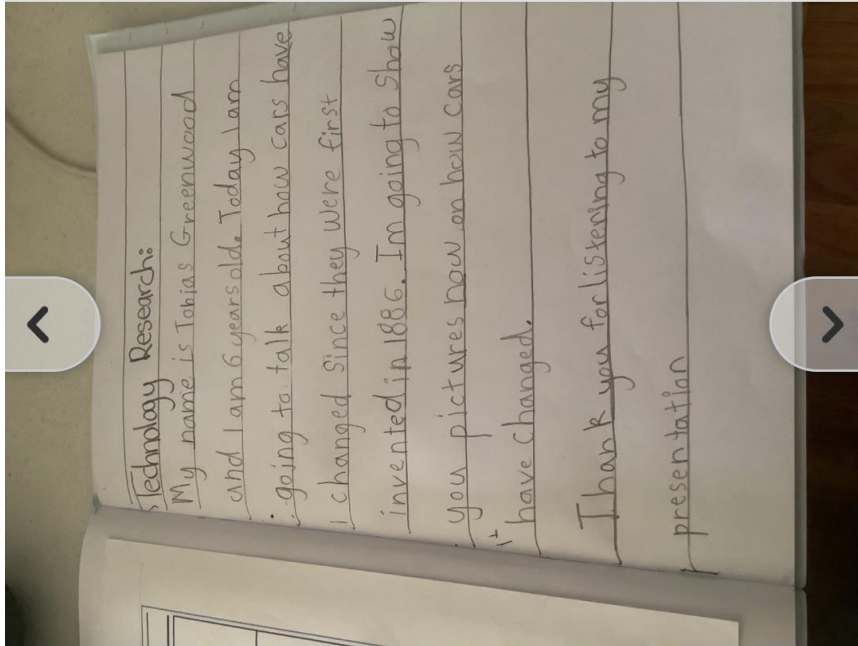 Technology Research:
My name is Tobias Greenwood
and I am 6 years old. Today I am
going to talk about how cars have
changed since they were first
invented in 1886. Im going to show
you pictures now on how cars
have changed.
Thank you for listening to my
presentation